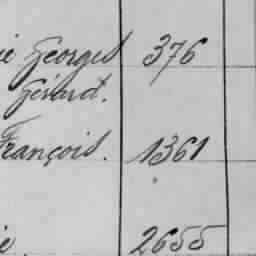 ie Georges 376
Gérard.
François. 1361
ie 2655